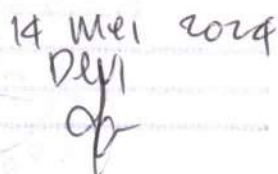 14 Mei 2024
Devi